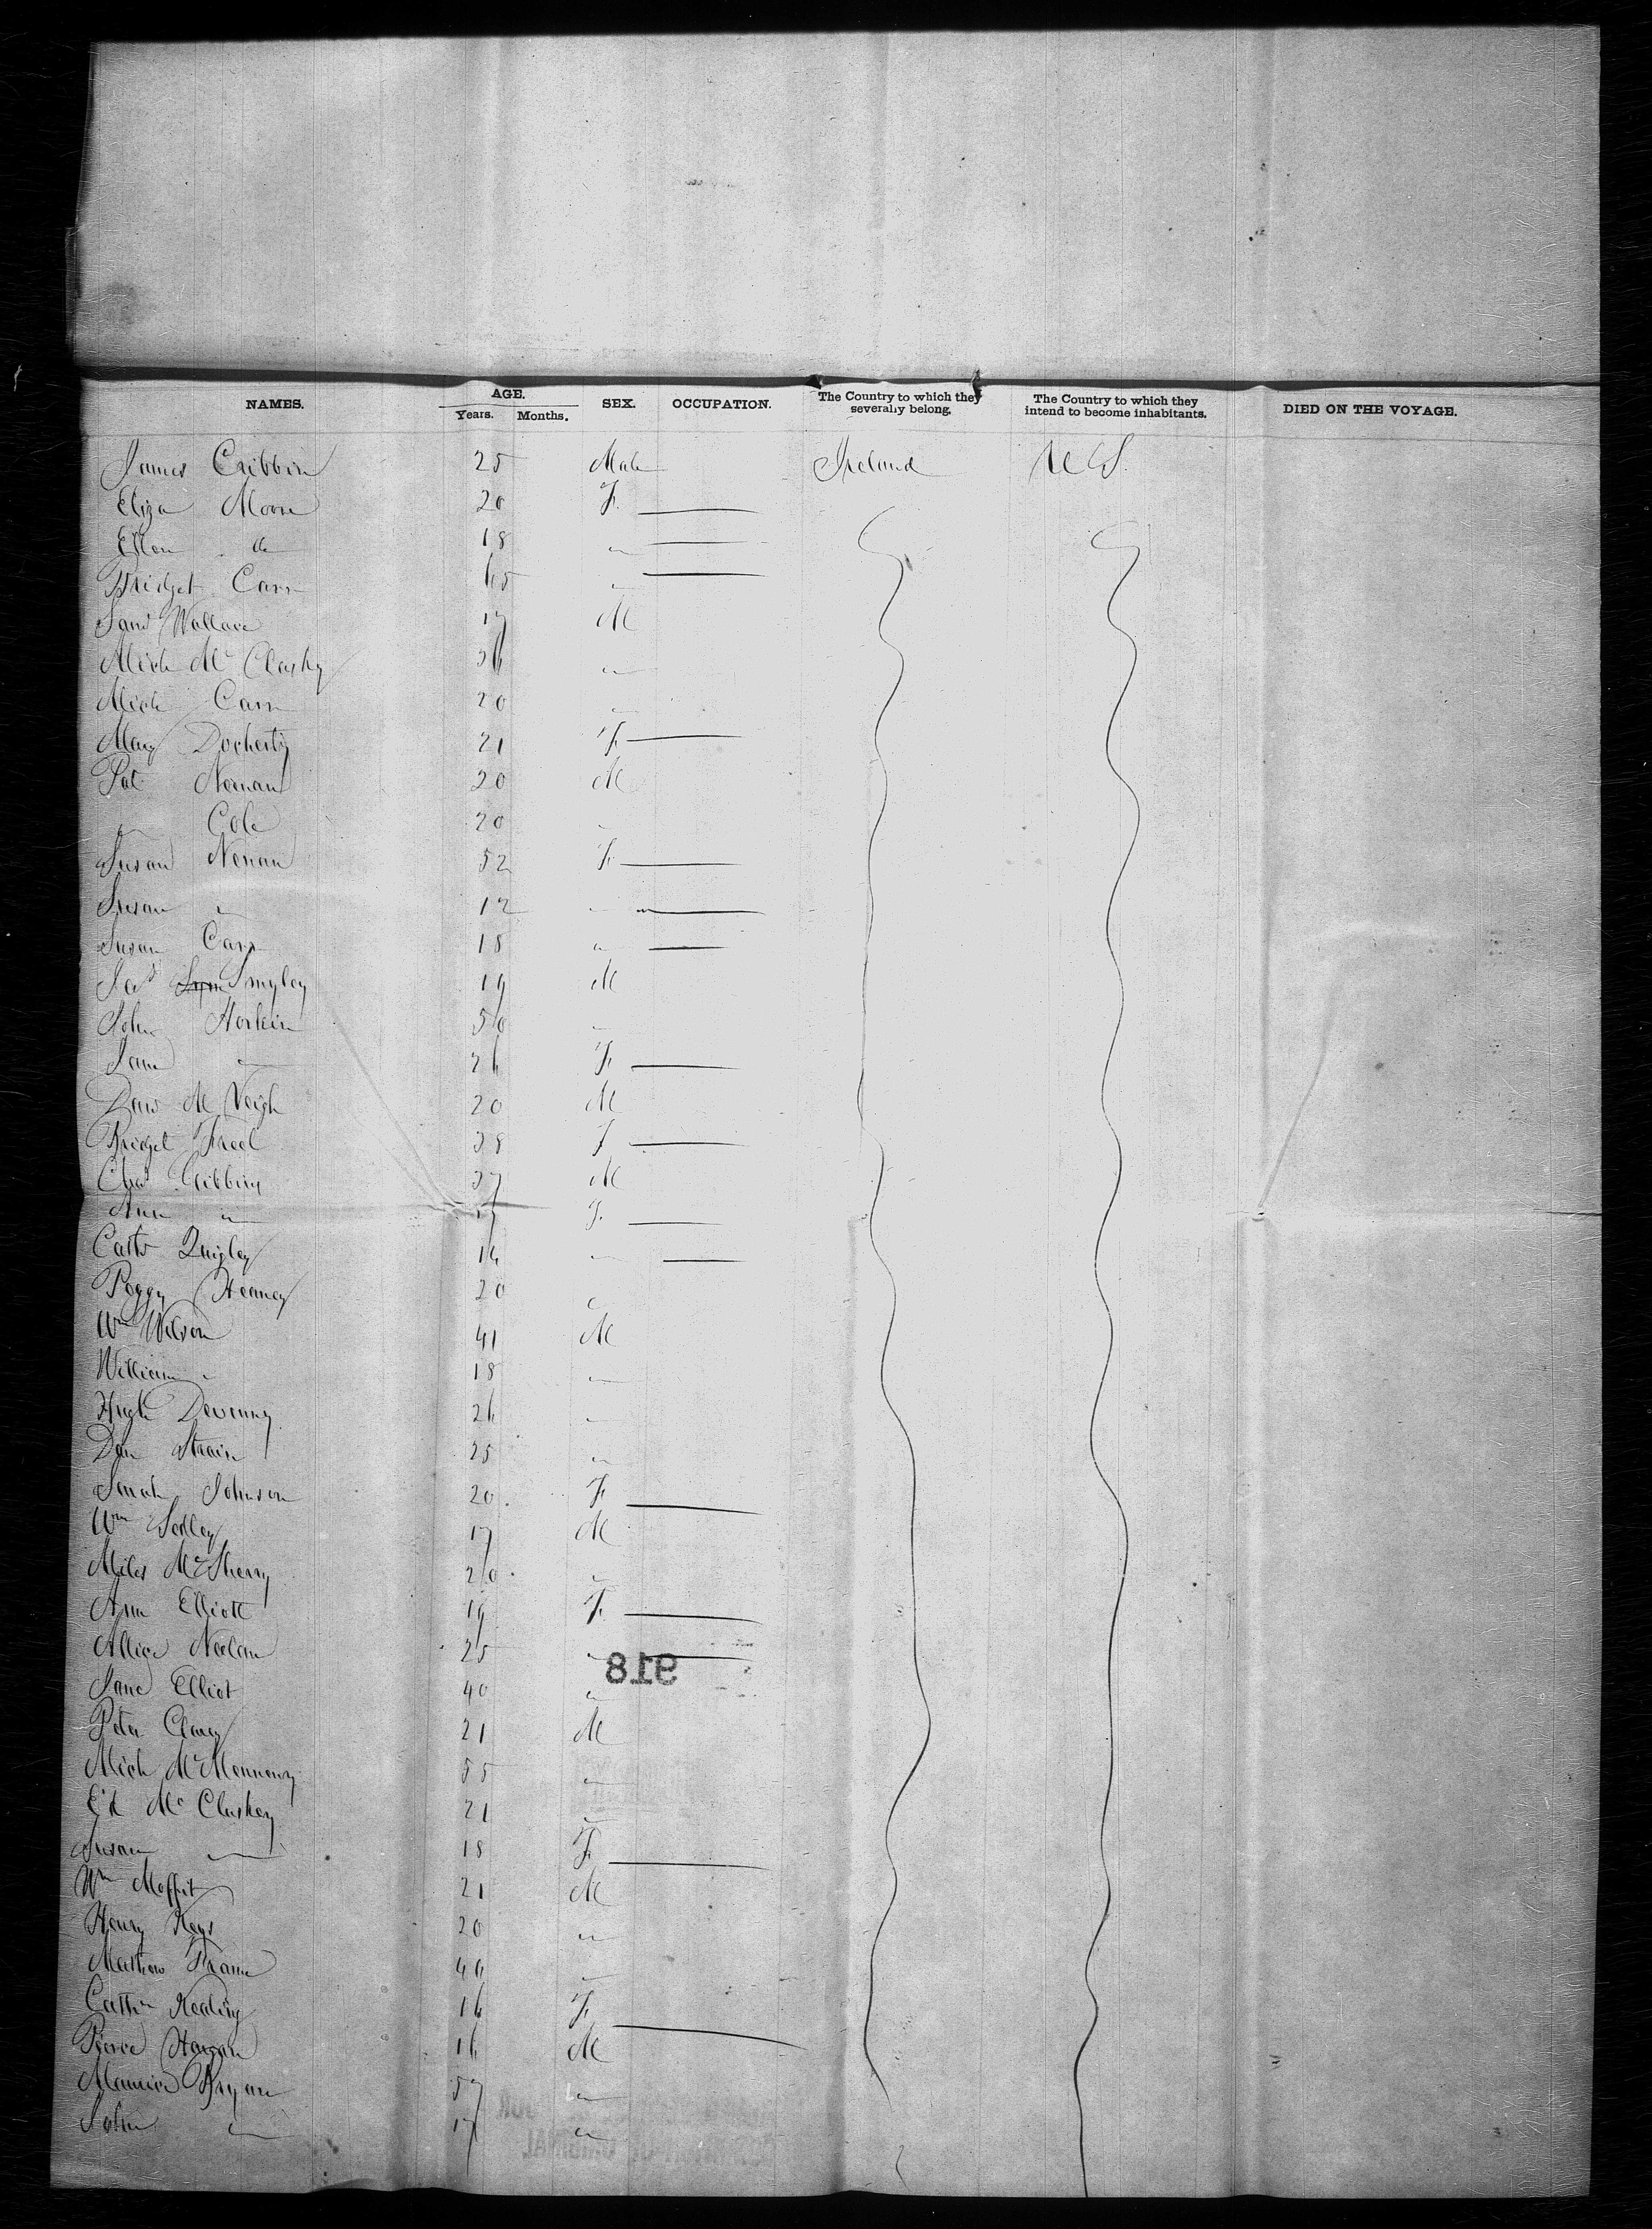 NAMES. AGE. Years. Months. SEX. OCCUPATION. The Country to which they severally belong. The Country to which they intend to become inhabitants. DIED ON THE VOYAGE.
James Cribbin 25 Male Ireland U.S.
Eliza Moore 20 F.
Ellen do 18 "
Bridget Carr 65 "
Sam Wallace 17 M
Mich Mc Closky 36 "
Mich Carr 20 "
Mary Docherty 21 F
Pat 20 M
" Cole 20 "
Susan Nenan 52 F
Susan " 12 "
Susan Carr 18 "
Jas Smyley 19 M
John Horkin 50 "
Jane " 26 F
Dav Mc Veigh 20 M
Bridget Freel 38 F
Chas Gibbins 37 M
Ann " F.
Cath Quigley 16 "
Peggy Heaney 20 "
Wm Wilson 41 M
William " 18 "
Hugh Devenny 26 "
Dan Strain 25 "
Sarah Johnson 20 F
Wm Sedley 17 M
Miles McSherry 20 "
Ann Elliott 19 F
Allice Neelan 25 "
918
Jane Elliot 40 "
Peter Clancy 21 M
Mich 55 "
Ed Mc Cluskey 21 "
Susan " 18 F
Wm Moffit 21 M
Henry Keys 20 "
Mathew 40 "
Cathn Keating 16 F
Pierce Hogan 16 M
Maurice Bryan 57 "
John " 17 "